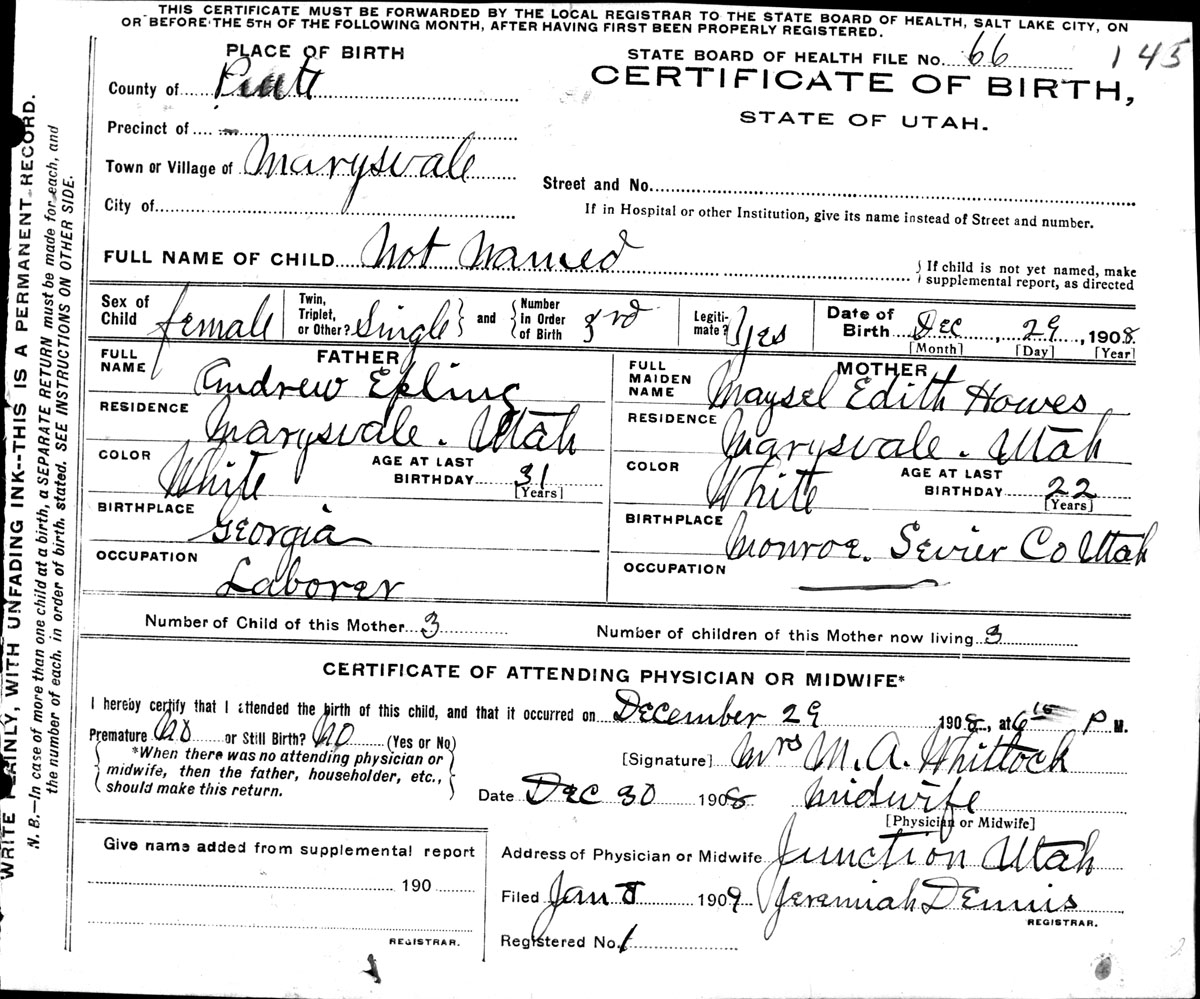 THIS CERTIFICATE MUST BE FORWARDED BY THE LOCAL REGISTRAR TO THE STATE BOARD OF HEALTH, SALT LAKE CITY, ON
OR BEFORE THE 5TH OF THE FOLLOWING MONTH, AFTER HAVING FIRST BEEN PROPERLY REGISTERED.
WRITE PLAINLY, WITH UNFADING INK--THIS IS A PERMANENT RECORD.
N. B.—In case of more than one child at a birth, a SEPARATE RETURN must be made for each, and
the number of each, in order of birth, stated. SEE INSTRUCTIONS ON OTHER SIDE.
PLACE OF BIRTH
STATE BOARD OF HEALTH FILE No. 66
145
County of
CERTIFICATE OF BIRTH,
STATE OF UTAH.
Precinct of
Town or Village of Marysvale
Street and No.
City of
If in Hospital or other Institution, give its name instead of Street and number.
FULL NAME OF CHILD Not Named
If child is not yet named, make
supplemental report, as directed
Sex of Child female
Twin, Triplet, or Other? Single and
Number in Order of Birth 3rd
Legitimate? Yes
Date of Birth Dec 29, 1908
[Month] [Day] [Year]
FATHER
FULL NAME Andrew Epling
RESIDENCE Marysvale. Utah
COLOR White
AGE AT LAST BIRTHDAY 31
[Years]
BIRTHPLACE Georgia
OCCUPATION Laborer
MOTHER
FULL MAIDEN NAME Maysel Edith Howes
RESIDENCE Marysvale. Utah
COLOR White
AGE AT LAST BIRTHDAY 22
[Years]
BIRTHPLACE Monroe. Sevier Co Utah
OCCUPATION
Number of Child of this Mother 3
Number of children of this Mother now living 3
CERTIFICATE OF ATTENDING PHYSICIAN OR MIDWIFE*
I hereby certify that I attended the birth of this child, and that it occurred on December 29 1908, at 6 15 P M.
Premature No or Still Birth? No (Yes or No)
*When there was no attending physician or
midwife, then the father, householder, etc.,
should make this return.
[Signature] Mrs M. A. Whittock
Date Dec 30 1908 Midwife
[Physician or Midwife]
Give name added from supplemental report
190
REGISTRAR.
Address of Physician or Midwife Junction Utah
Filed Jan 1909 Jeremiah Dennis
REGISTRAR.
Registered No. 1